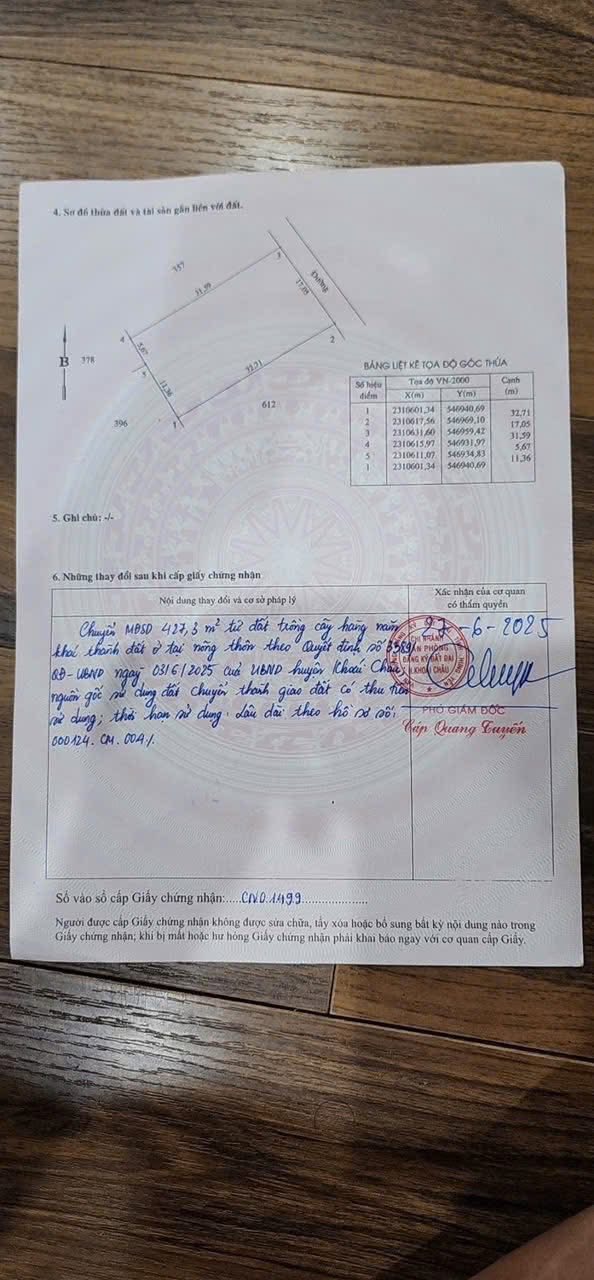 4. Sơ đồ thửa đất và tài sản gắn liền với đất.
357
3
Đường
31,59
17,05
4
2
B
378
5,67
5
32,71
11,36
612
396
1
BẢNG LIỆT KÊ TỌA ĐỘ GÓC THỬA
Số hiệu điểm Tọa độ VN-2000 Cạnh (m)
X(m) Y(m)
1 2310601,34 546940,69
32,71
2 2310617,56 546969,10
17,05
3 2310631,60 546959,42
31,59
4 2310615,97 546931,97
5,67
5 2310611,07 546934,83
11,36
1 2310601,34 546940,69
5. Ghi chú: -/-
6. Những thay đổi sau khi cấp giấy chứng nhận
Nội dung thay đổi và cơ sở pháp lý
Xác nhận của cơ quan
có thẩm quyền
Chuyển MĐSD 427,3 m² từ đất trồng cây hàng năm
khác thành đất ở tại nông thôn theo Quyết định số 3389
QĐ-UBND ngày 03/6/2025 của UBND huyện Khoái Châu,
nguồn gốc sử dụng đất chuyển thành giao đất có thu tiền
sử dụng; thời hạn sử dụng: Lâu dài theo hồ sơ số:
000124.CM.004./.
27-6-2025
CHI NHÁNH
VĂN PHÒNG
ĐĂNG KÝ ĐẤT ĐAI
H. KHOÁI CHÂU
PHÓ GIÁM ĐỐC
Cáp Quang Tuyến
Số vào sổ cấp Giấy chứng nhận:.....CND.1499...................
Người được cấp Giấy chứng nhận không được sửa chữa, tẩy xóa hoặc bổ sung bất kỳ nội dung nào trong
Giấy chứng nhận; khi bị mất hoặc hư hỏng Giấy chứng nhận phải khai báo ngay với cơ quan cấp Giấy.